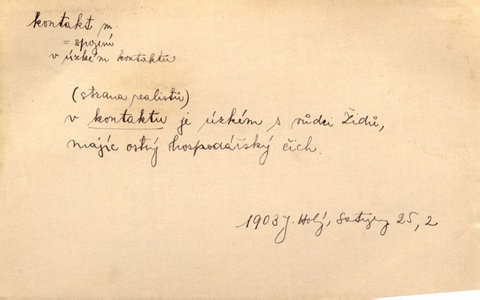 kontakt m.
= spojení
v úzkém kontaktu
(strana realistů)
v kontaktu je úzkém s vůdci Židů,
majíc ostrý hospodářský čich.
1903 J. Holý, Satiry 25, 2